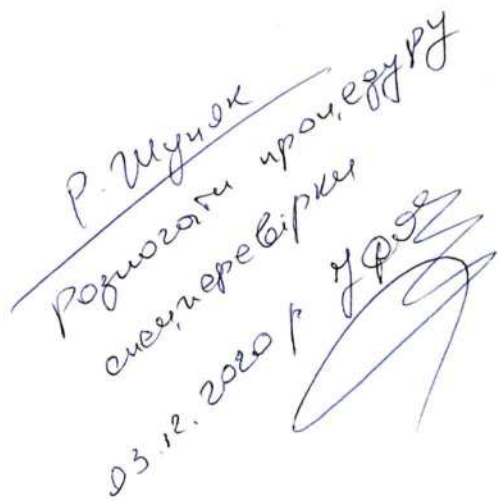 Р. Шуняк
Розпочати процедуру
спецперевірки
03.12.2020 р